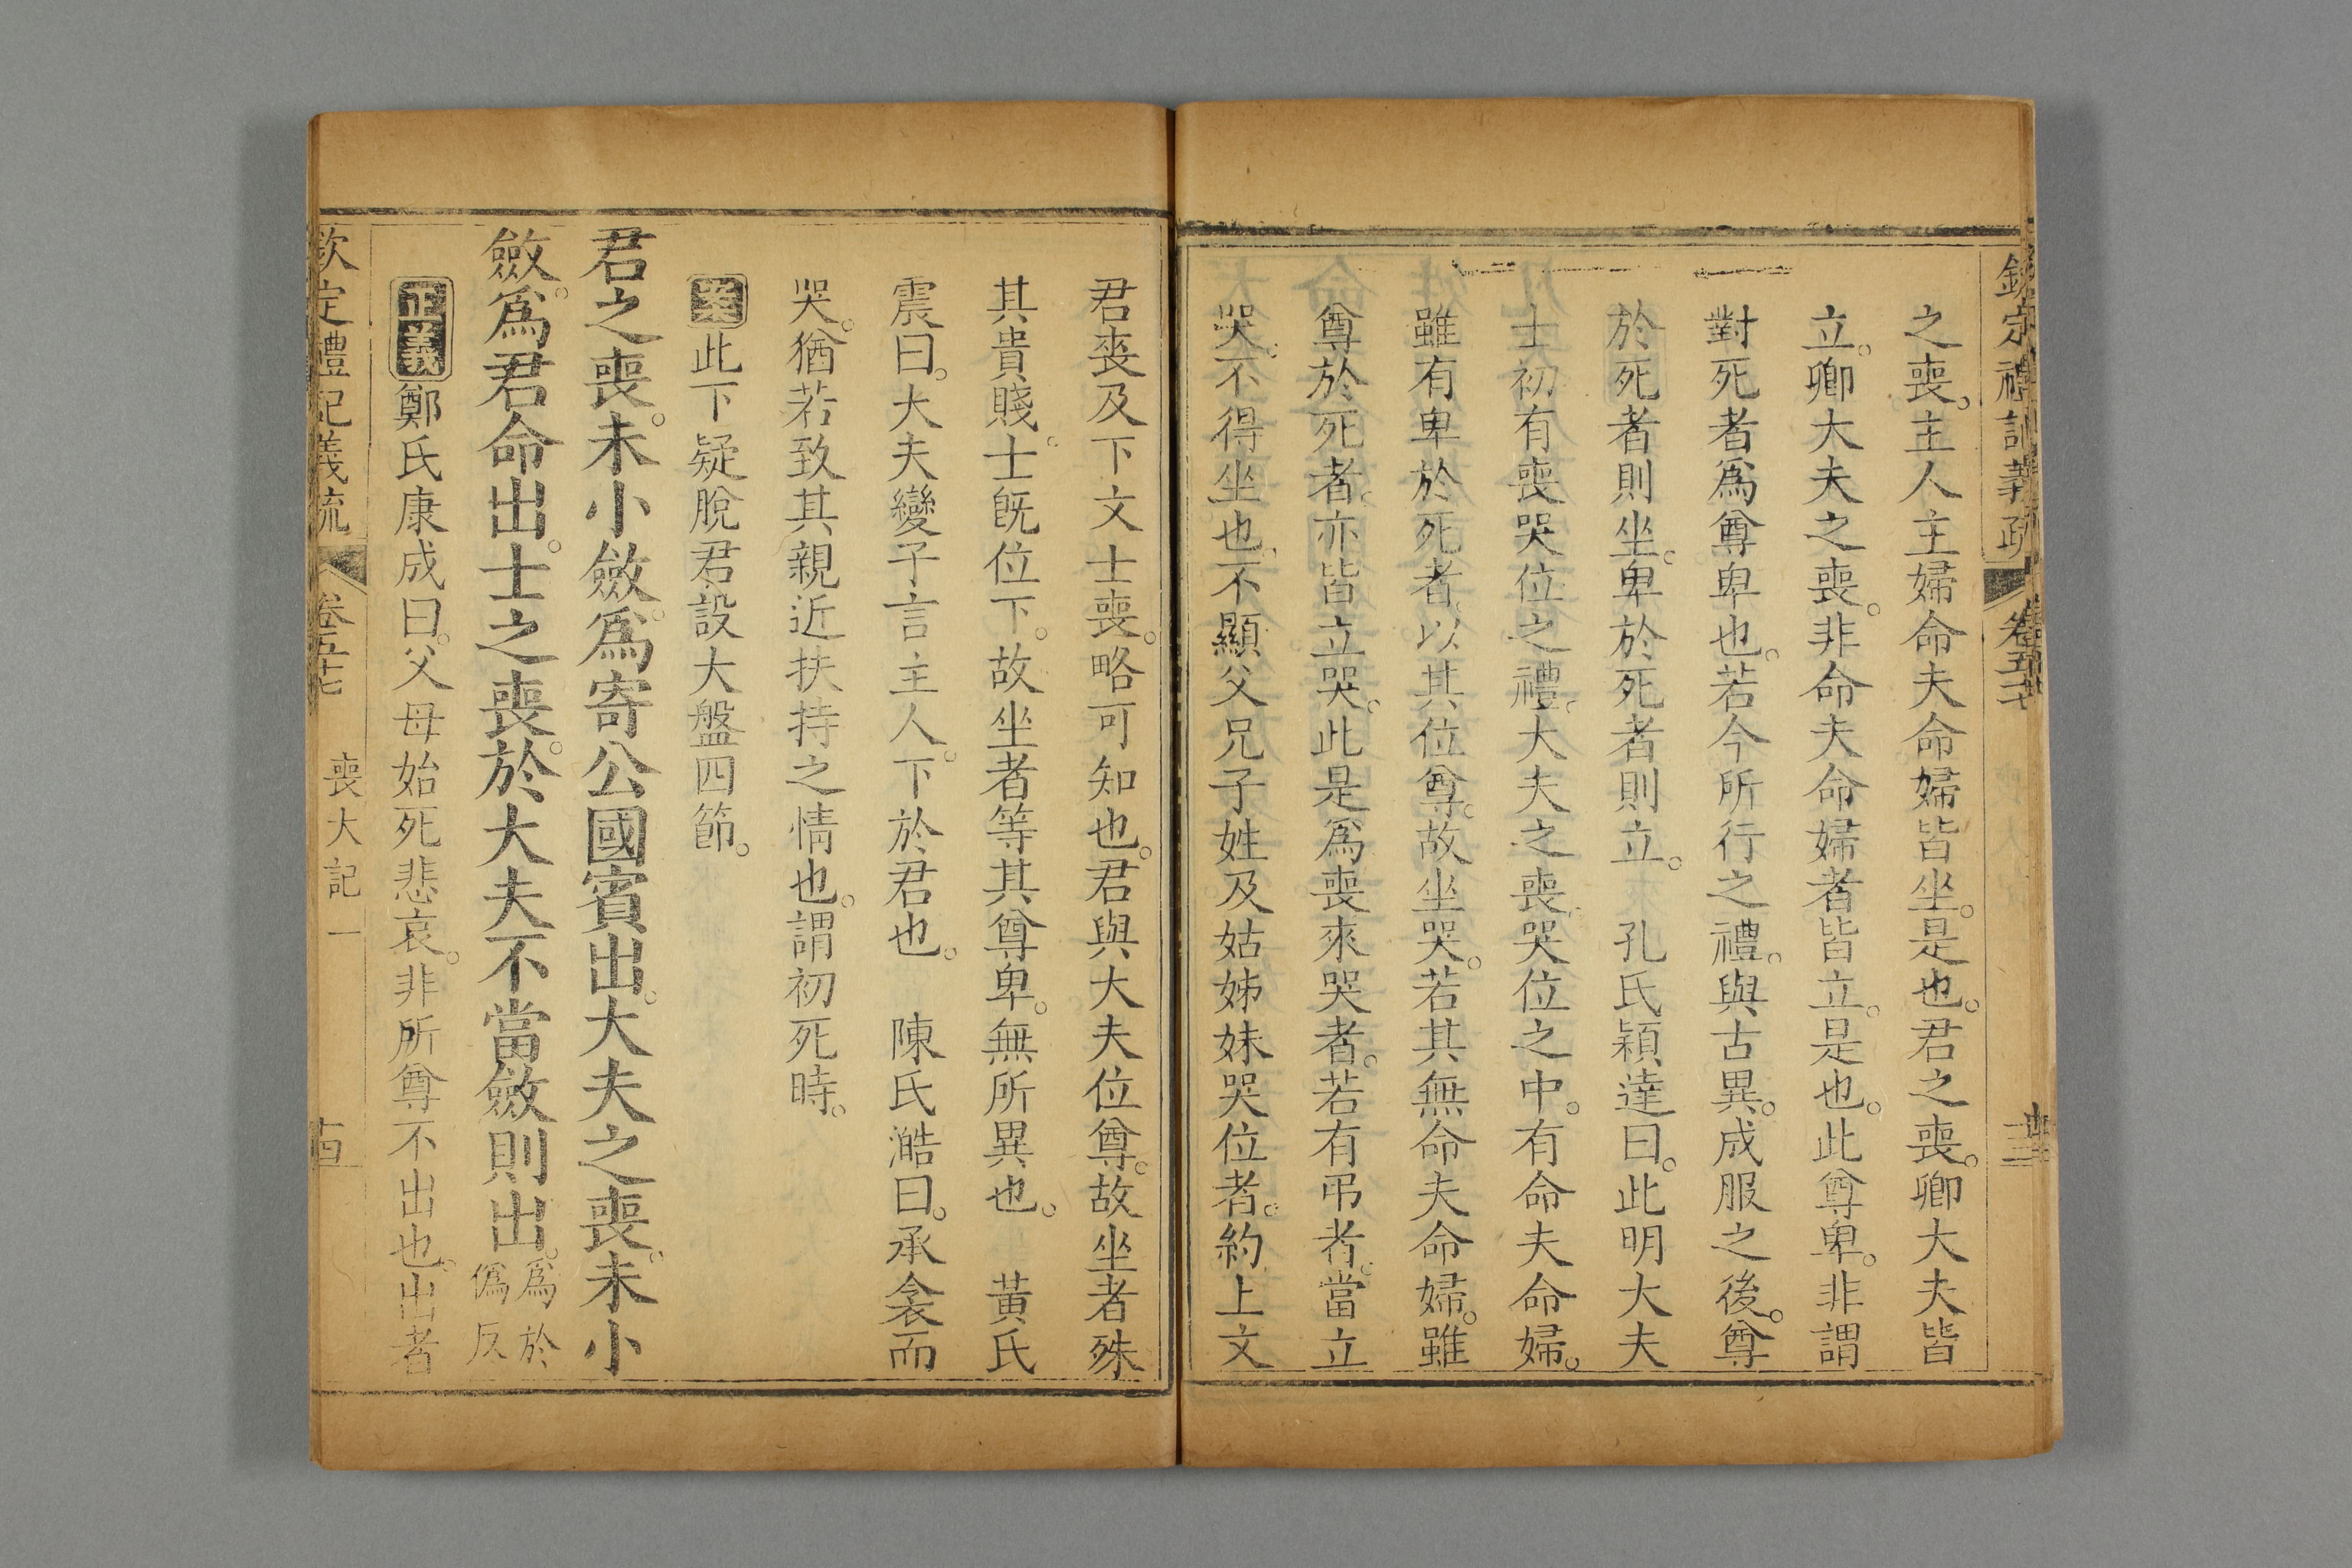 欽定禮記義疏　卷五十七
之喪。主人主婦命夫命婦皆坐。是也。君之喪。卿大夫皆
立。卿大夫之喪。非命夫命婦者皆立。是也。此尊卑。非謂
對死者爲尊卑也。若今所行之禮。與古異。成服之後。尊
於死者則坐。卑於死者則立。　孔氏穎達曰。此明大夫
士初有喪哭位之禮。大夫之喪。哭位之中。有命夫命婦。
雖有卑於死者。以其位尊。故坐哭。若其無命夫命婦。雖
尊於死者。亦皆立哭。此是爲喪來哭者。若有弔者。當立
哭。不得坐也。不顯父兄子姓及姑姊妹哭位者。約上文
君喪及下文士喪。略可知也。君與大夫位尊。故坐者殊
其貴賤。士既位下。故坐者等其尊卑。無所異也。　黃氏
震曰。大夫變子言主人。下於君也。　陳氏澔曰。承衾而
哭。猶若致其親近扶持之情也。謂初死時。
案此下疑脫君設大盤四節。
君之喪。未小斂。爲寄公國賓出。大夫之喪。未小
斂。爲君命出。士之喪。於大夫不當斂則出。爲於僞反
正義鄭氏康成曰。父母始死悲哀。非所尊不出也。出者
欽定禮記義疏　卷五十七　喪大記一　十四